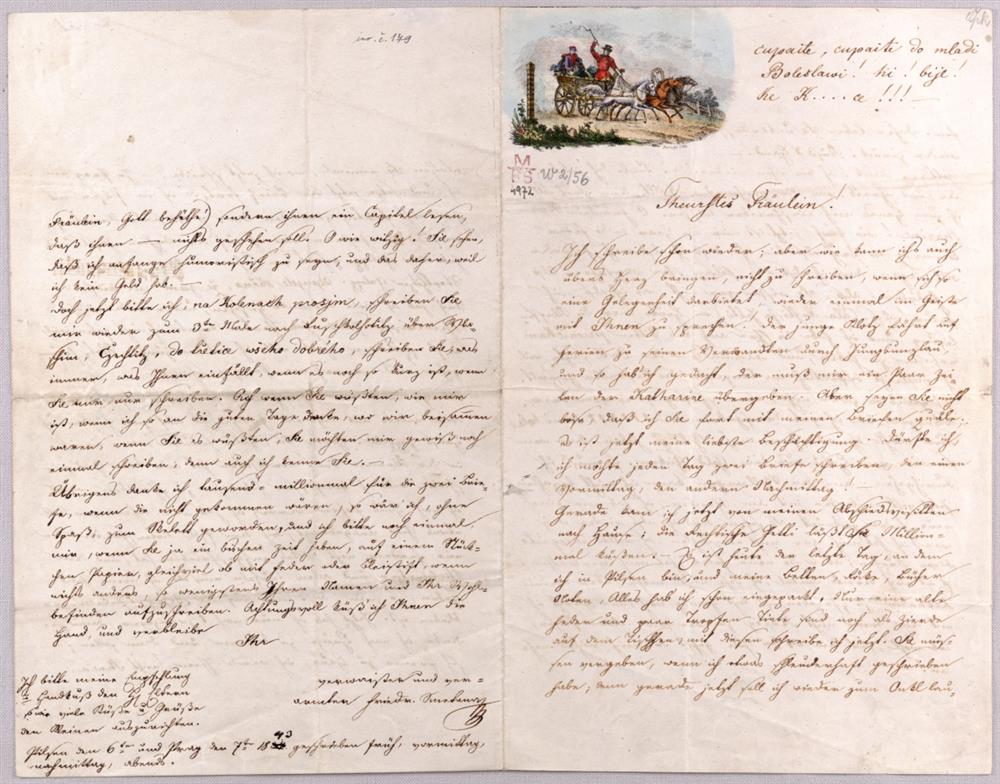 inv. č. 149
cupaite, cupaiti do mladi
Boleslawi! hi! bije!
he K....ce!!! —
M
W 2/56
4972
Theuerstes Fräulein!
Ich schreibe schon wieder; aber wie kann ichs auch
übers Herz bringen, nicht zu schreiben, wenn sich so
eine Gelegenheit darbietet, wieder einmal im Geiste
mit Ihnen zu sprechen! der junge Klotz fährt auf
Ferien zu seinen Verwandten durch Jungbunzlau,
und so hab ich gedacht, der muß mir ein Paar Zei-
len der Katharine übergeben. Aber seyen Sie nicht
böse, daß ich Sie fort mit meinen Briefen quäle.
Es ist jetzt meine liebste Beschäftigung. Dürfte ich,
ich möchte jeden Tag zwei Briefe schreiben, den einen
Vormittag, den andern Nachmittag! —
Gerade kam ich jetzt von meinen Abschiedsvisitten
nach Hause; die Betti läßt Sie Million-
mal küssen. — Es ist heute der letzte Tag, an dem
ich in Pilsen bin, und meine Betten, Röcke, Bücher
Noten, Alles hab ich schon eingepackt. Nur eine alte
Feder und paar Tropfen Tinte sind noch als Zierde
auf dem Tischchen, mit diesen schreibe ich jetzt. Sie müs-
sen vergeben, wenn ich etwas schleuderhaft geschrieben
habe, denn gerade jetzt soll ich wieder zum Onkl lau-
Fräulein, Gott behüthe!) sondern ihnen ein Capitel lesen,
daß ihnen — nichts geschehen soll. O wie witzig! Sie sehen,
daß ich anfange humoristisch zu seyn, und das daher, weil
ich kein Geld hab. —
Doch jetzt bitte ich, na kolenach prosjm, schreiben Sie
mir wieder zum 3ten Male nach über Wla-
schim, Czechtitz, do třetice wšeho dobrého, schreiben Sie, was
immer, was Ihnen einfällt, wenn es noch so kurz ist, wenn
Sie mir nur schreiben. Ach wenn Sie wüßten, wie mir
ist, wenn ich so an die guten Tage denke, wo wir beisammen
waren, wenn Sie es wüßten, Sie möchten mir gewiß noch
einmal schreiben, denn auch ich kenne Sie. —
Übrigens danke ich tausend-millionmal für die zwei Brie-
fe, wenn die nicht gekommen wären, so wär ich, ohne
Spaß, zum Skelett geworden, und ich bitte noch einmal
mir, wenn Sie ja ein bischen Zeit haben, auf einem Stück-
chen Papier, gleichviel ob mit Feder oder Bleistift, wenn
nichts anders, so wenigstens Ihren Namen und Ihr Wohl-
befinden aufzuschreiben. Achtungsvoll küß ich Ihnen die
Hand und verbleibe
Ihr
verwaister und ver-
armter Friedr. Smetana
Ich bitte meine Empfehlung
u Handkuß den Eltern
wie viele Küße u Grüße
den Kleinen auszurichten.
Pilsen den 6ten und Prag den 7ten 1843 geschrieben früh, vormittag,
nachmittag, abends.